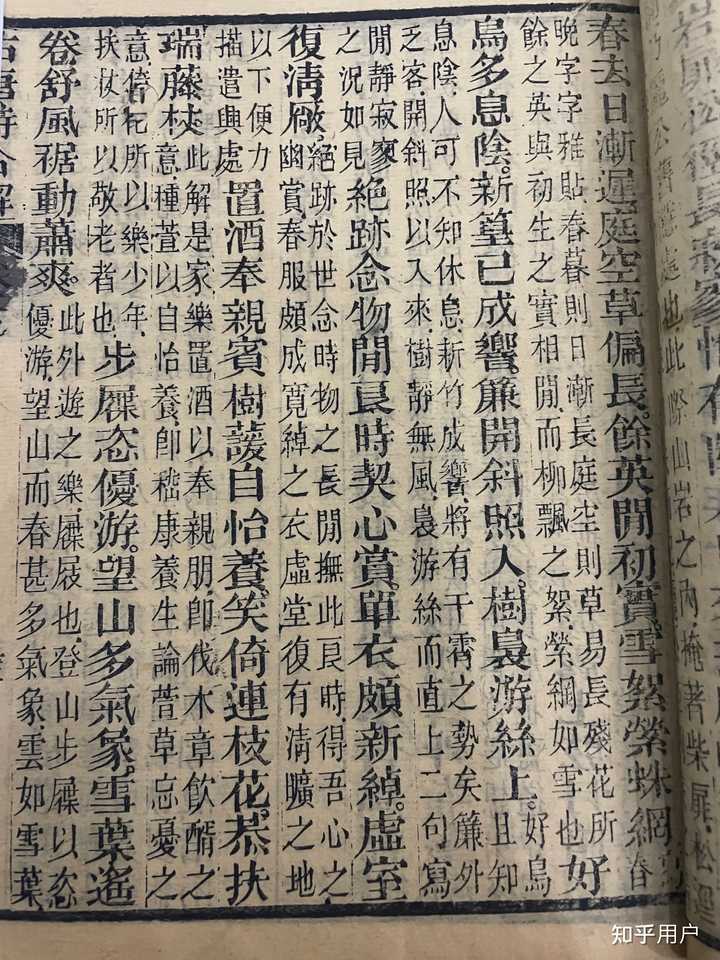 處也此際山岩之內掩著柴扉松
春去日漸遲庭空草偏長。餘英閒初實雪絮縈蛛網春
晚字字雅貼春暮則日漸長庭空則草易長殘花所
餘之英與初生之實相間而柳飄之絮縈網如雪也好好鳥
鳥多息陰。新篁已成響。簾開斜照入。樹裊游絲上。且知
息陰人可不知休息新竹成響將有干霄之勢矣簾外
乏客開斜照以入來樹靜無風裊游絲而直上二句寫
閒靜寂寥
之況如見絕跡念物閒良時契心賞。單衣頗新綽。虛室
復清敞絕跡於世念時物之長閒撫此良時得吾心之
幽賞春服頗成寬綽之衣虛堂復有清曠之地
以下便力
描遣興處置酒奉親賓樹萲自怡養。笑倚連枝花。恭扶
瑞藤杖此解是家樂置酒以奉親朋即伐木章飲酳之
意種萱以自怡養即嵇康養生論萱草忘憂之
意倚花所以樂少年
扶杖所以敬老者也步屧恣優游。望山多氣象。雪葉遙
卷舒風裾動蕭爽。此外遊之樂屧屐也登山步屧以恣
優游望山而春甚多氣象雲如雪葉
古唐詩合解
知乎用户